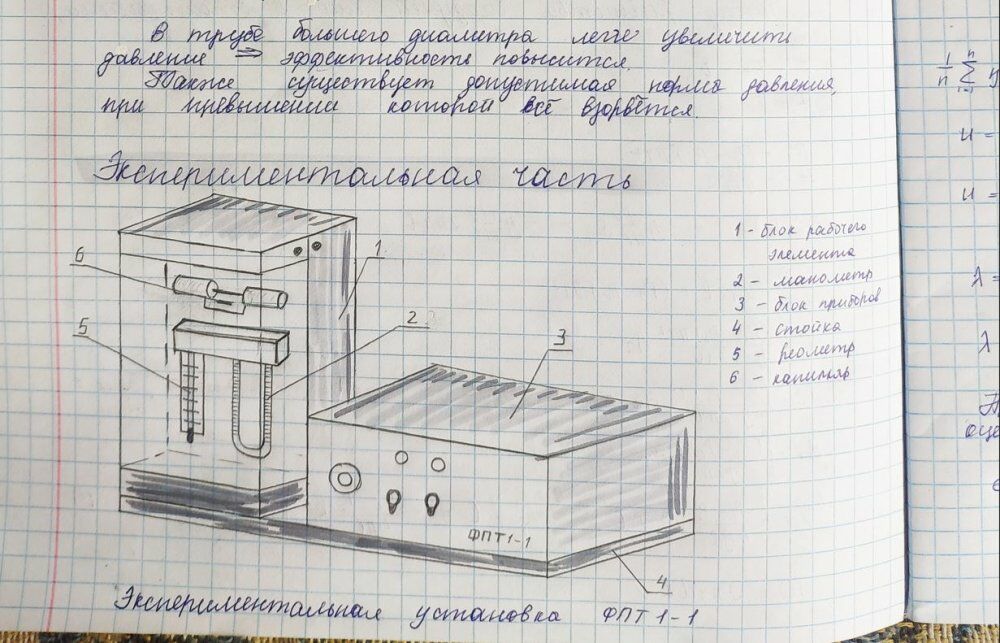 В трубе большего диаметра легче увеличить
давление ⇒ эффективность повысится.
Также существует допустимая норма давления,
при превышении которой всё взорвётся.
Экспериментальная часть
1 - блок рабочего
элемента
2 - манометр
3 - блок приборов
4 - стойка
5 - реометр
6 - капилляр
1
6
2
5
3
ФПТ1-1
4
Экспериментальная установка ФПТ1-1
1/n ∑
n
i=1
u =
u =
λ =
λ